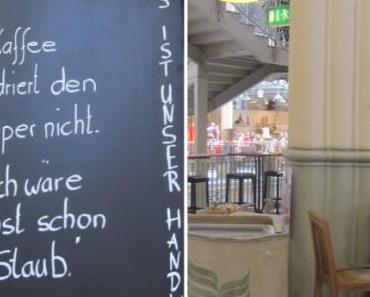 Kaffee
driert den
per nicht.
ch wäre
st schon
Staub."
S IST UNSER HAND